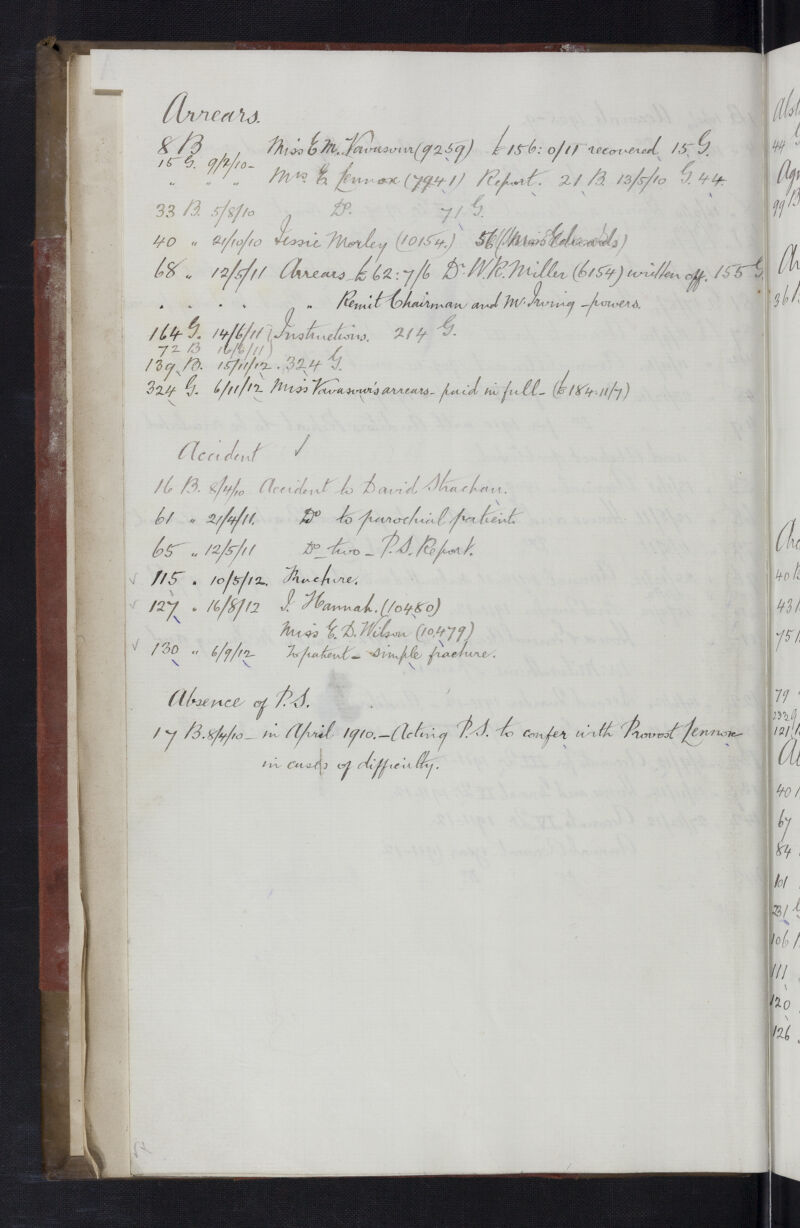 Arrears.
8 B Miss E. M. Vavasour (9259) £156:0/11 recovered 15 G.
15 G. 9/2/10 -
" " " Mrs E Lennox (7941) Report. 21 B. 13/5/10 G. 44.
33 B. 5/8/10 Do. 71 G.
40 " 21/10/10 Jessie Morley (10154.) 56 (Miss Edwards)
68 " 12/5/11 Arrears £62:7/6 Dr. W. R. Miller (6154) written off. 155 G.
. . . . " Remit Chairman and Mr. Irving - powers.
164 G. 14/6/11 } Instructions. 214 G.
72 B 16/6/11 }
139 B. 15/11/12 . 324 G.
324 G. 6/11/12 Miss Vavasour's arrears - paid in full - (£184:11/7)
Accident √
16 B. 8/4/10 Accident to David Strachan.
61 " 21/4/11. Do to parochial patient.
65 " 12/5/11 Do - two - P.S. Report.
√ 115 " 10/5/12. Fracture.
√ 127 " 16/8/12 J. Hannah. (10480)
Miss E. D. Wilson (10479)
√ 130 " 6/9/12 To patient - simple fracture.
Absence of P.S.
17 B. 8/4/10 - in April 1910. - Acting P.S. to confer with Provost Lennox
in cases of difficulty.
44
99 B
36
40
43
75
79
121
40
67
84
101
231
106
111
120
126